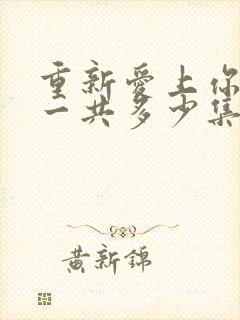 重新愛上你
一共多少集
黄新錦